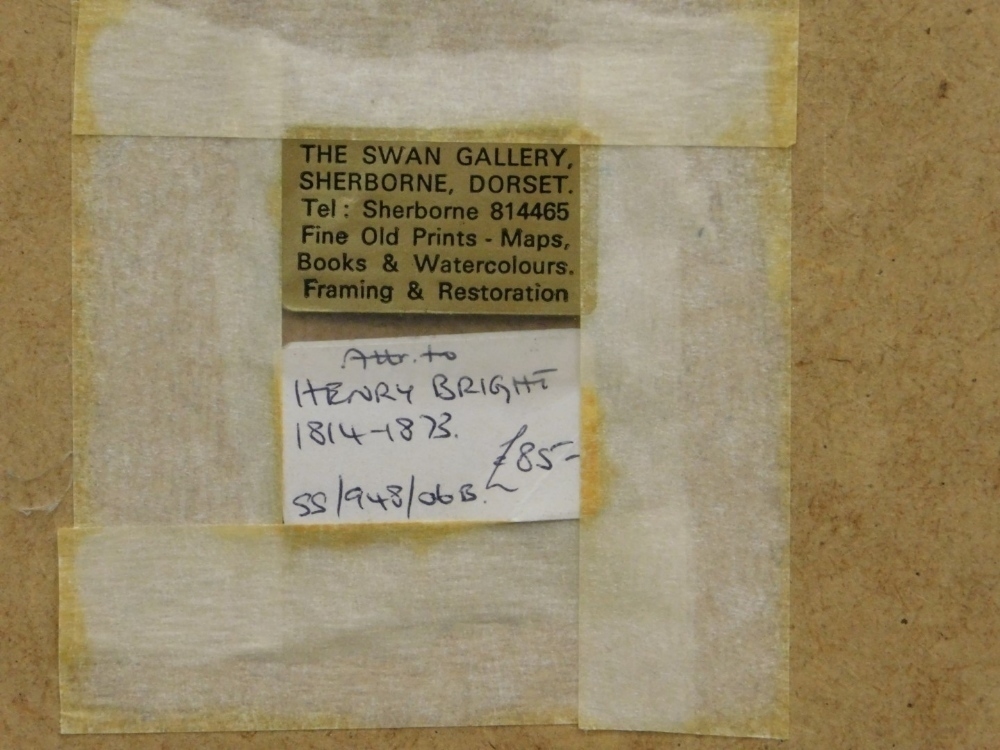 THE SWAN GALLERY,
SHERBORNE, DORSET.
Tel: Sherborne 814465
Fine Old Prints - Maps,
Books & Watercolours.
Framing & Restoration
Attr. to
HENRY BRIGHT
1814-1873.
£85-
SS/948/06B.